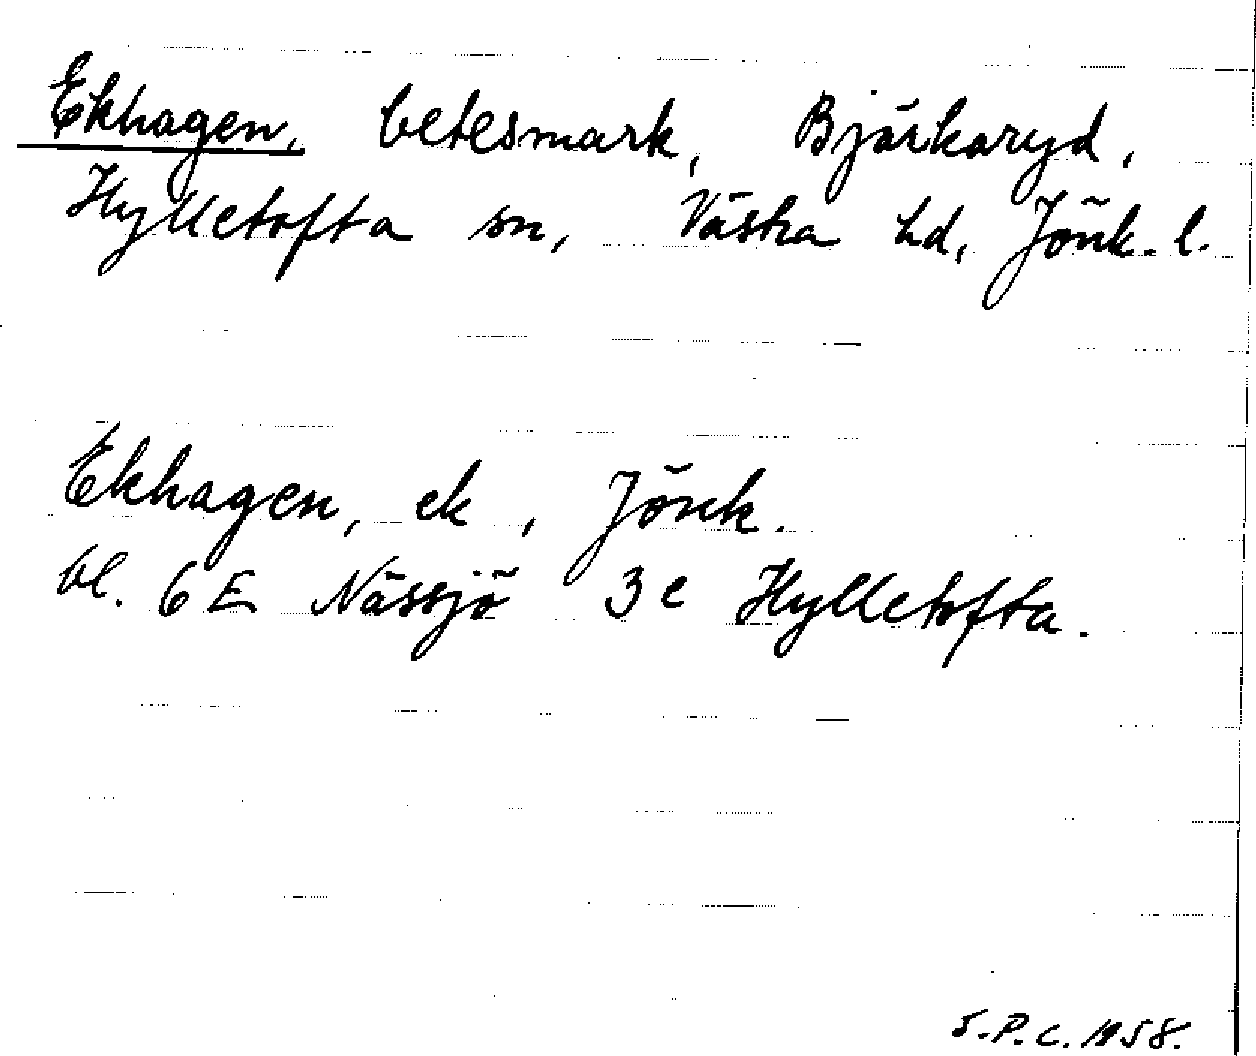 Ekhagen, betesmark, Bjärkaryd,
Hylletofta sn, Västra hd, Jönk. l.
Ekhagen, ek, Jönk.
bl. 6E Nässjö 3e Hylletofta.
S.P.C. 1958.